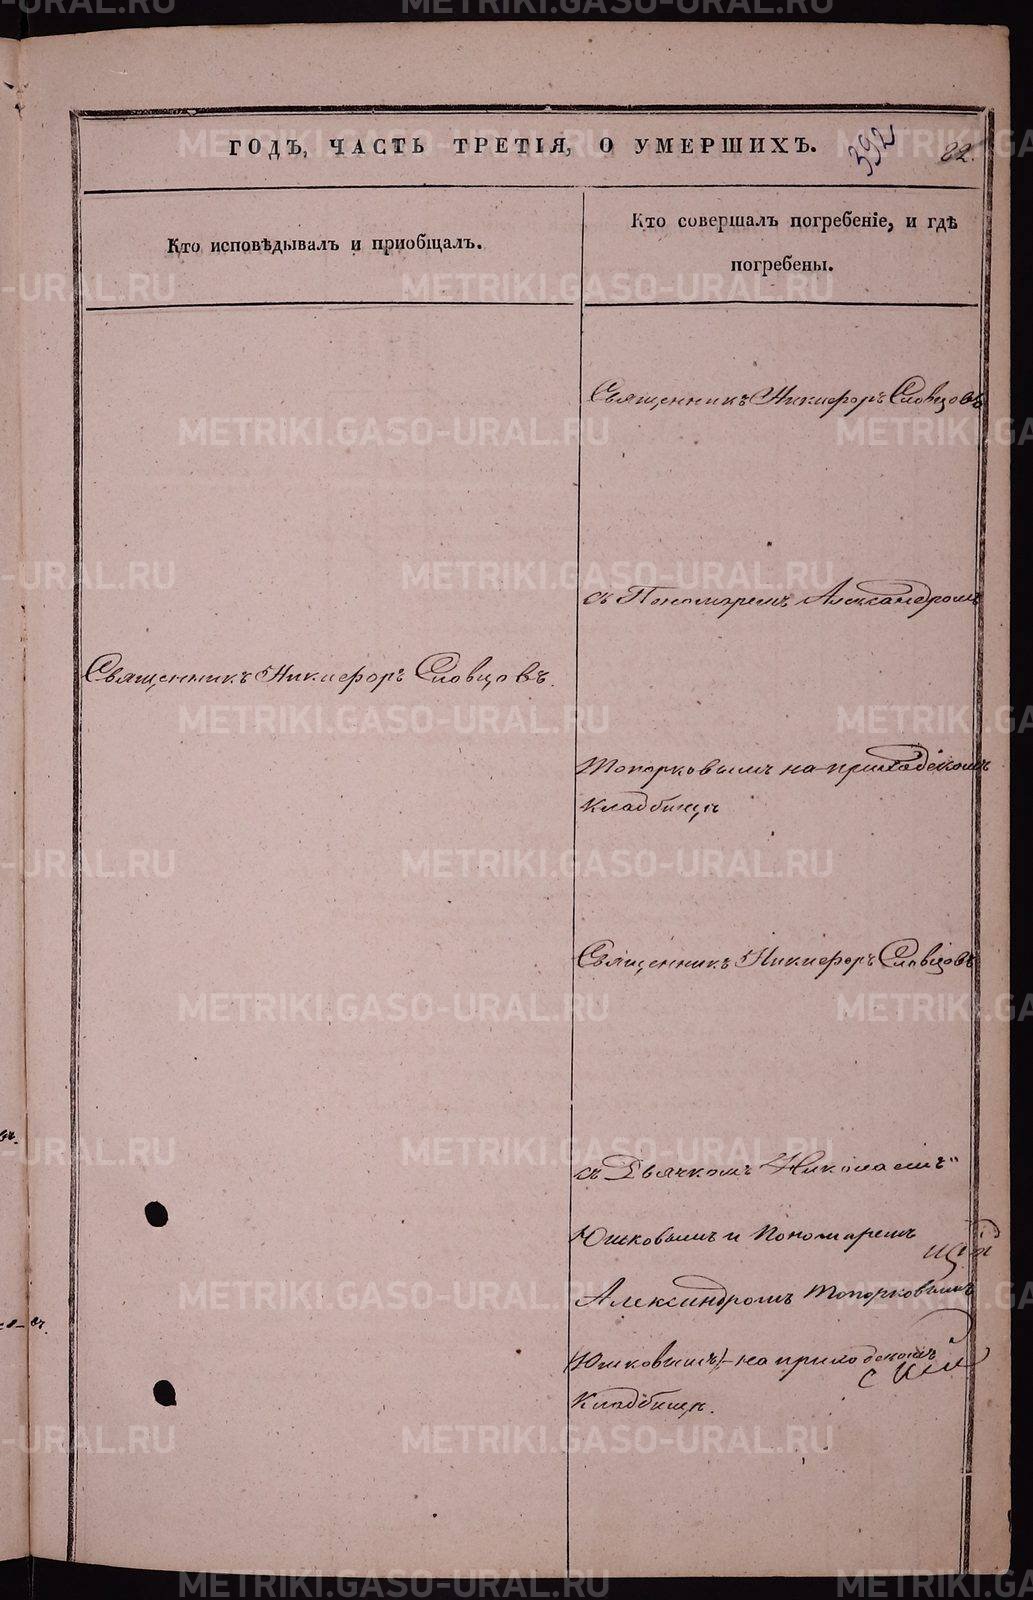 ГОДЪ, ЧАСТЬ ТРЕТІЯ, О УМЕРШИХЪ.
392
82.
Кто исповѣдывалъ и пріобщалъ.
Кто совершалъ погребеніе, и гдѣ
погребены.
Священникъ Никифоръ Словцовъ
съ Пономаремъ Александромъ
Священникъ Никифоръ Словцовъ.
Топорковымъ на приходскомъ
кладбищѣ
Священникъ Никифоръ Словцовъ
съ Дьячкомъ Николаемъ
Юшковымъ и Пономаремъ
Александромъ Топорковымъ
(Юшковымъ) на приходскомъ
Кладбищѣ.
METRIKI.GASO-URAL.RU